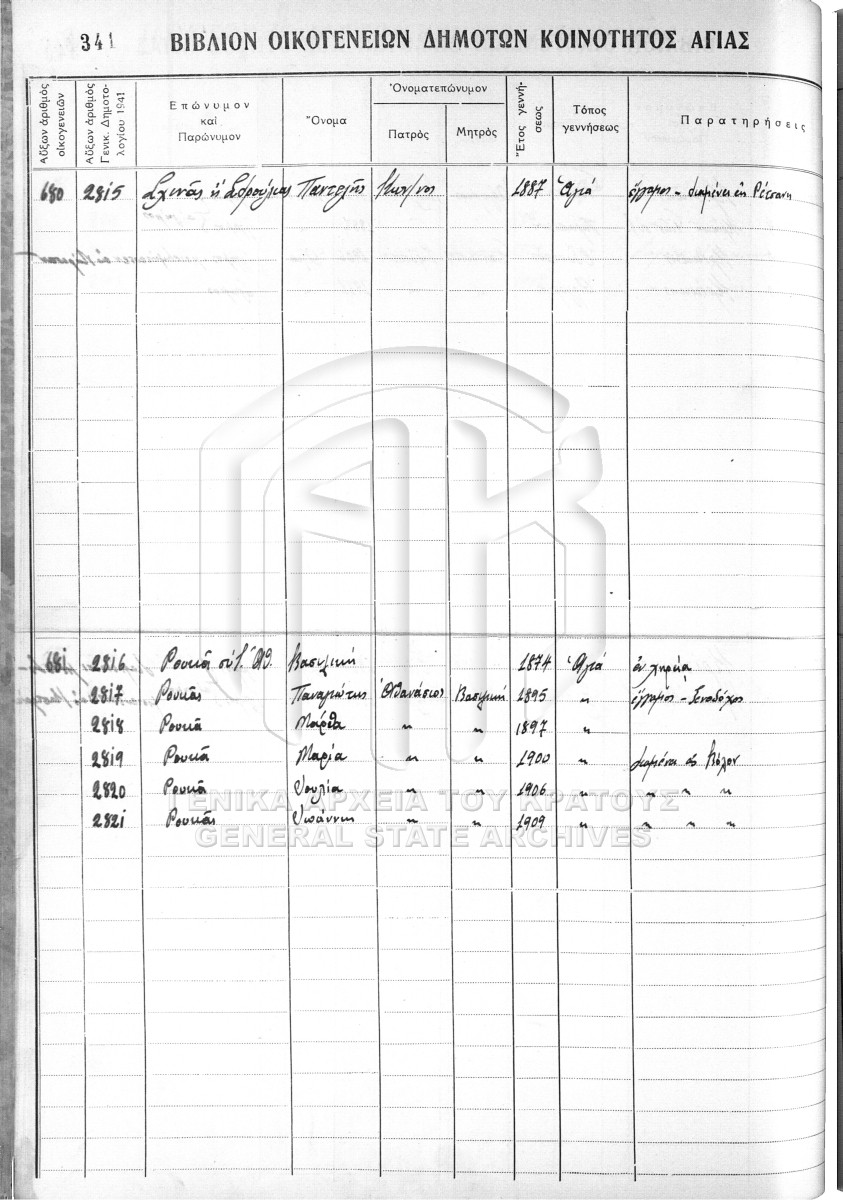 341 ΒΙΒΛΙΟΝ ΟΙΚΟΓΕΝΕΙΩΝ ΔΗΜΟΤΩΝ ΚΟΙΝΟΤΗΤΟΣ ΑΓΙΑΣ
Αὔξων ἀριθμὸς οἰκογενειῶν
Αὔξων ἀριθμὸς Γενικ. Δημοτολογίου 1941
Ἐπώνυμον καὶ Παρώνυμον
Ὄνομα
Ὀνοματεπώνυμον
Πατρὸς Μητρὸς
Ἔτος γεννήσεως
Τόπος γεννήσεως
Παρατηρήσεις
680 2815 Σχινᾶς ἢ Παντελῆς Κων/νος 1887 Ἁγιά ἔγγαμος - διαμένει
681 2816 Ρουκᾶ σύζ. Ἀθ. Βασιλική 1874 Ἁγιά ἐν χηρείᾳ
2817 Ρουκᾶς Παναγιώτης Ἀθανάσιος Βασιλική 1895 〃 ἔγγαμος - Ξενοδόχος
2818 Ρουκᾶ Μάρθα 〃 〃 1897 〃
2819 Ρουκᾶ Μαρία 〃 〃 1900 〃 διαμένει εἰς Βόλον
2820 Ρουκᾶ Ἰουλία 〃 〃 1906 〃 〃 〃 〃
2821 Ρουκᾶς Ἰωάννης 〃 〃 1909 〃 〃 〃 〃
ΓΕΝΙΚΑ ΑΡΧΕΙΑ ΤΟΥ ΚΡΑΤΟΥΣ
GENERAL STATE ARCHIVES